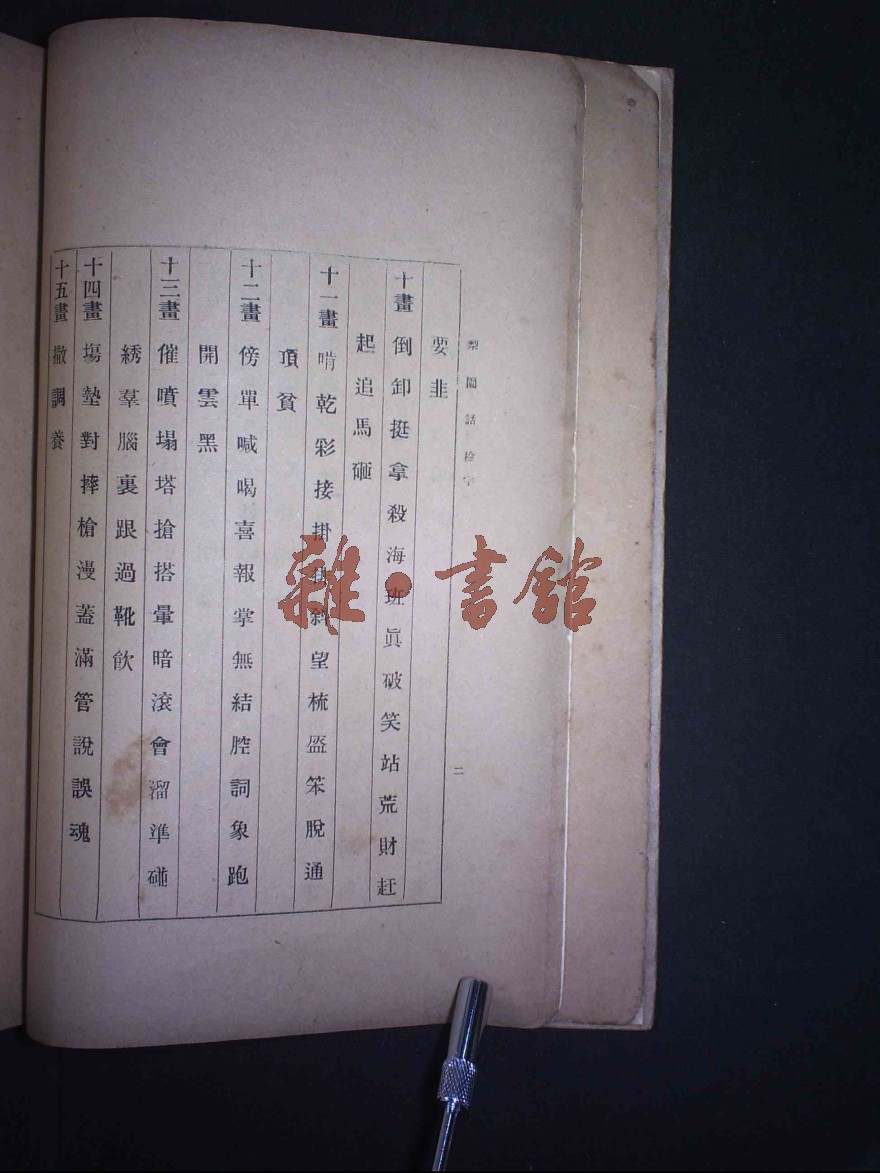 梨園話 檢字
二
要韭
十畫 倒卸挺拿殺海班眞破笑站荒財赶
起追馬砸
十一畫 啃乾彩接掛斜望梳盔笨脫通
頂貧
十二畫 傍單喊喝喜報掌無結腔詞象跑
開雲黑
十三畫 催噴塌塔搶搭暈暗滾會溜準碰
綉羣腦裏跟過靴飮
十四畫 塲墊對摔槍漫蓋滿管說誤魂
十五畫 撒調養
雜·書館